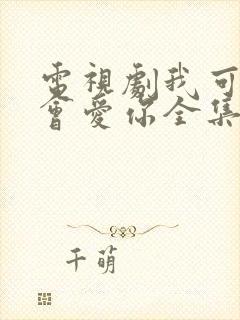 電視劇我可
會愛你全集
千萌